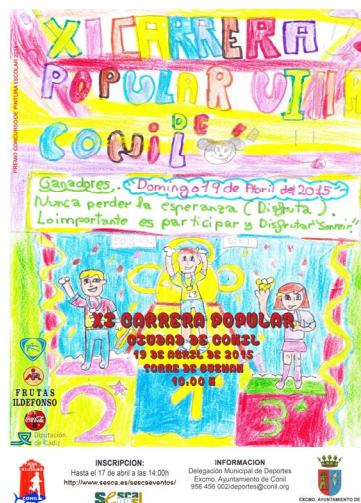 PREMIO CONCURSO DE PINTURA ESCOLAR 2015
XI CARRERA
POPULAR VILLA
DE
CONIL
Ganadores. "Domingo 19 de Abril del 2015"
Nunca perder la esperanza (Disfruta).
Lo importante es participar y Disfrutar "Sonreir"
XI CARRERA POPULAR
CIUDAD DE CONIL
19 DE ABRIL DE 2015
TORRE DE GUZMAN
10.00 H
2
1
3
FRUTAS
ILDEFONSO
Coca-Cola
Diputación
de Cádiz
CONIL
INSCRIPCION:
Hasta el 17 de abril a las 14:00h
http://www.sesca.es/sescaeventos/
sesca
INFORMACION
Delegación Municipal de Deportes
Excmo. Ayuntamiento de Conil
956 456 002/deportes@conil.org
EXCMO. AYUNTAMIENTO DE